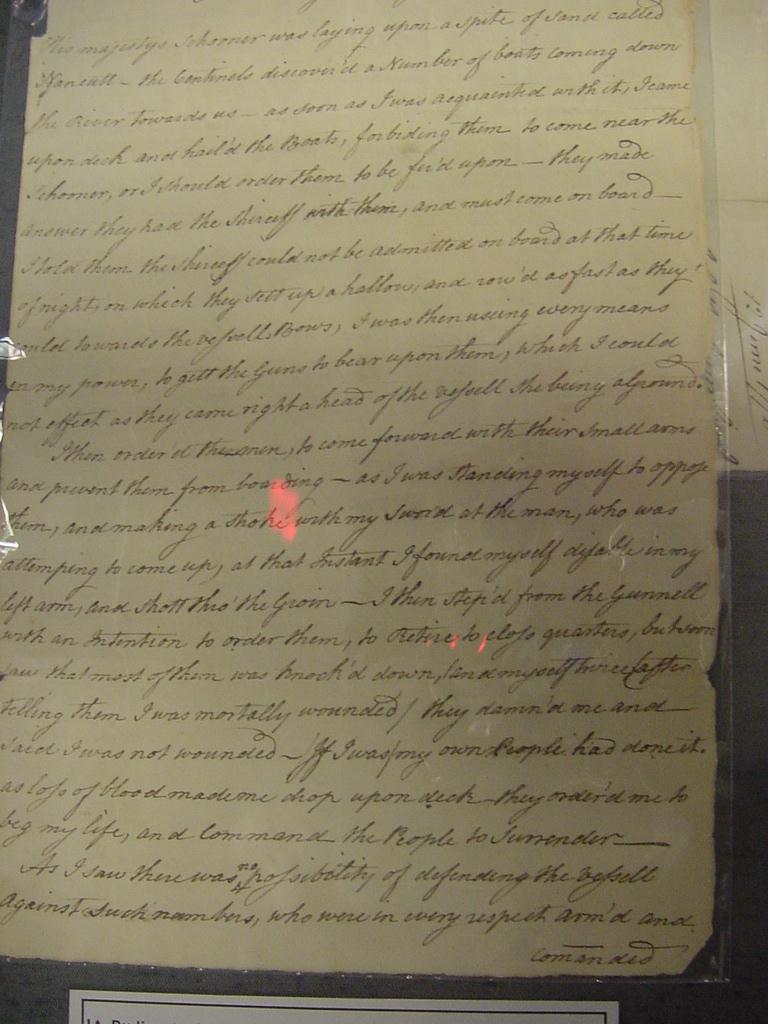 His majestys Schooner was laying upon a spite of Sand called
Nancutt – the Centinels discover'd a Number of boats coming down
the River towards us – as soon as I was acquainted with it, I came
upon deck and hail'd the Boats, forbiding them to come near the
Schooner, or I should order them to be fir'd upon – they made
answer they had the Shireeff with them, and must come on board –
I told them the Shireeff could not be admitted on board at that time
of night, on which they sett up a hallow, and row'd as fast as they
could towards the vessells Bows, I was then using every means
in my power, to gett the Guns to bear upon them, which I could
not effect as they came right a head of the vessell she being a Ground.
I then order'd the men, to come forward with their small arms
and prevent them from boarding – as I was standing myself to oppose
them, and making a stroke with my Sword at the man, who was
attemping to come up, at that Instant I found myself disable in my
left arm, and shott thro' the Groin – I then step'd from the Gunnell
with an Intention to order them, to Retire to closs quarters, but soon
saw that most of them was knock'd down, (and myself twice (after
telling them I was mortally wounded) they damn'd me and
said I was not wounded – If I was) my own People had done it.
as loss of blood made me drop upon deck – they order'd me to
beg my life, and Command the People to Surrender –
As I saw there was no possibility of defending the vessell
against such numbers, who were in every respect arm'd and
comanded